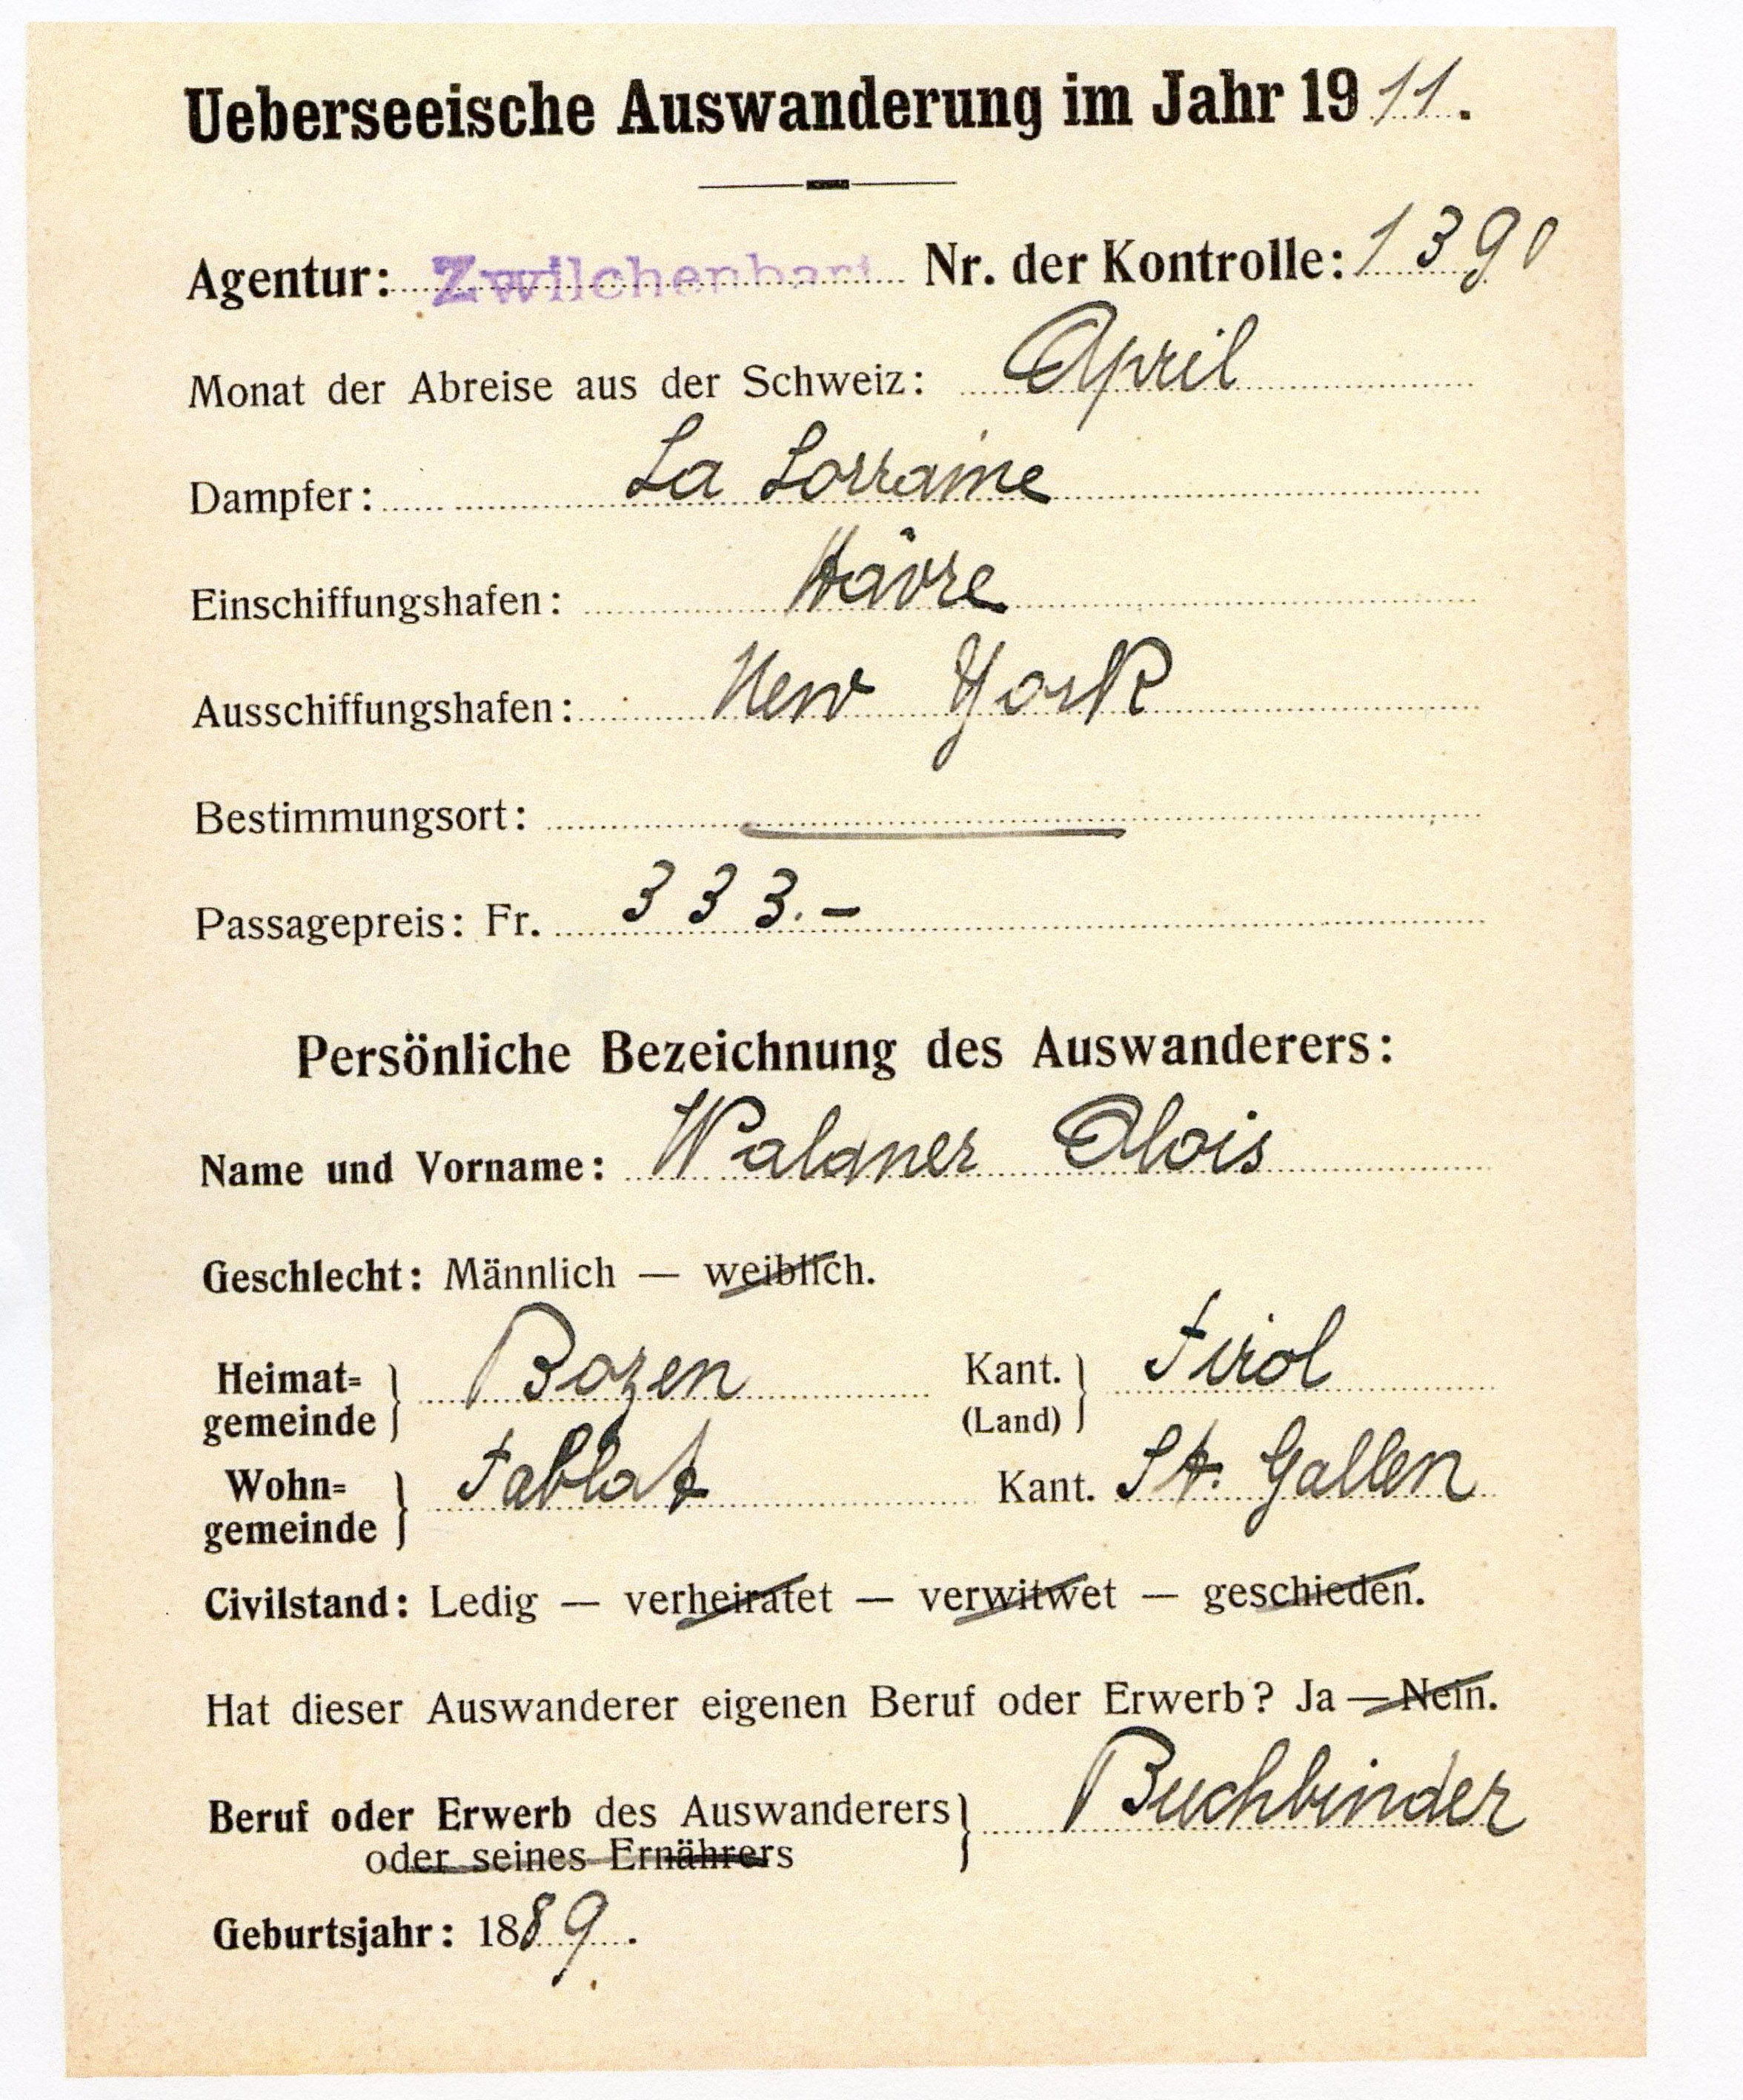 Ueberseeische Auswanderung im Jahr 1911.
Agentur: Zwilchenbart Nr. der Kontrolle: 1390
Monat der Abreise aus der Schweiz: April
Dampfer: La Lorraine
Einschiffungshafen: Hâvre
Ausschiffungshafen: New York
Bestimmungsort:
Passagepreis: Fr. 333.-
Persönliche Bezeichnung des Auswanderers:
Name und Vorname: Waldner Alois
Geschlecht: Männlich — weiblich.
Heimat=
gemeinde } Bozen Kant. (Land) } Tirol
Wohn=
gemeinde } Tablat Kant. St. Gallen
Civilstand: Ledig — verheiratet — verwitwet — geschieden.
Hat dieser Auswanderer eigenen Beruf oder Erwerb? Ja — Nein.
Beruf oder Erwerb des Auswanderers } Buchbinder
oder seines Ernährers
Geburtsjahr: 1889.